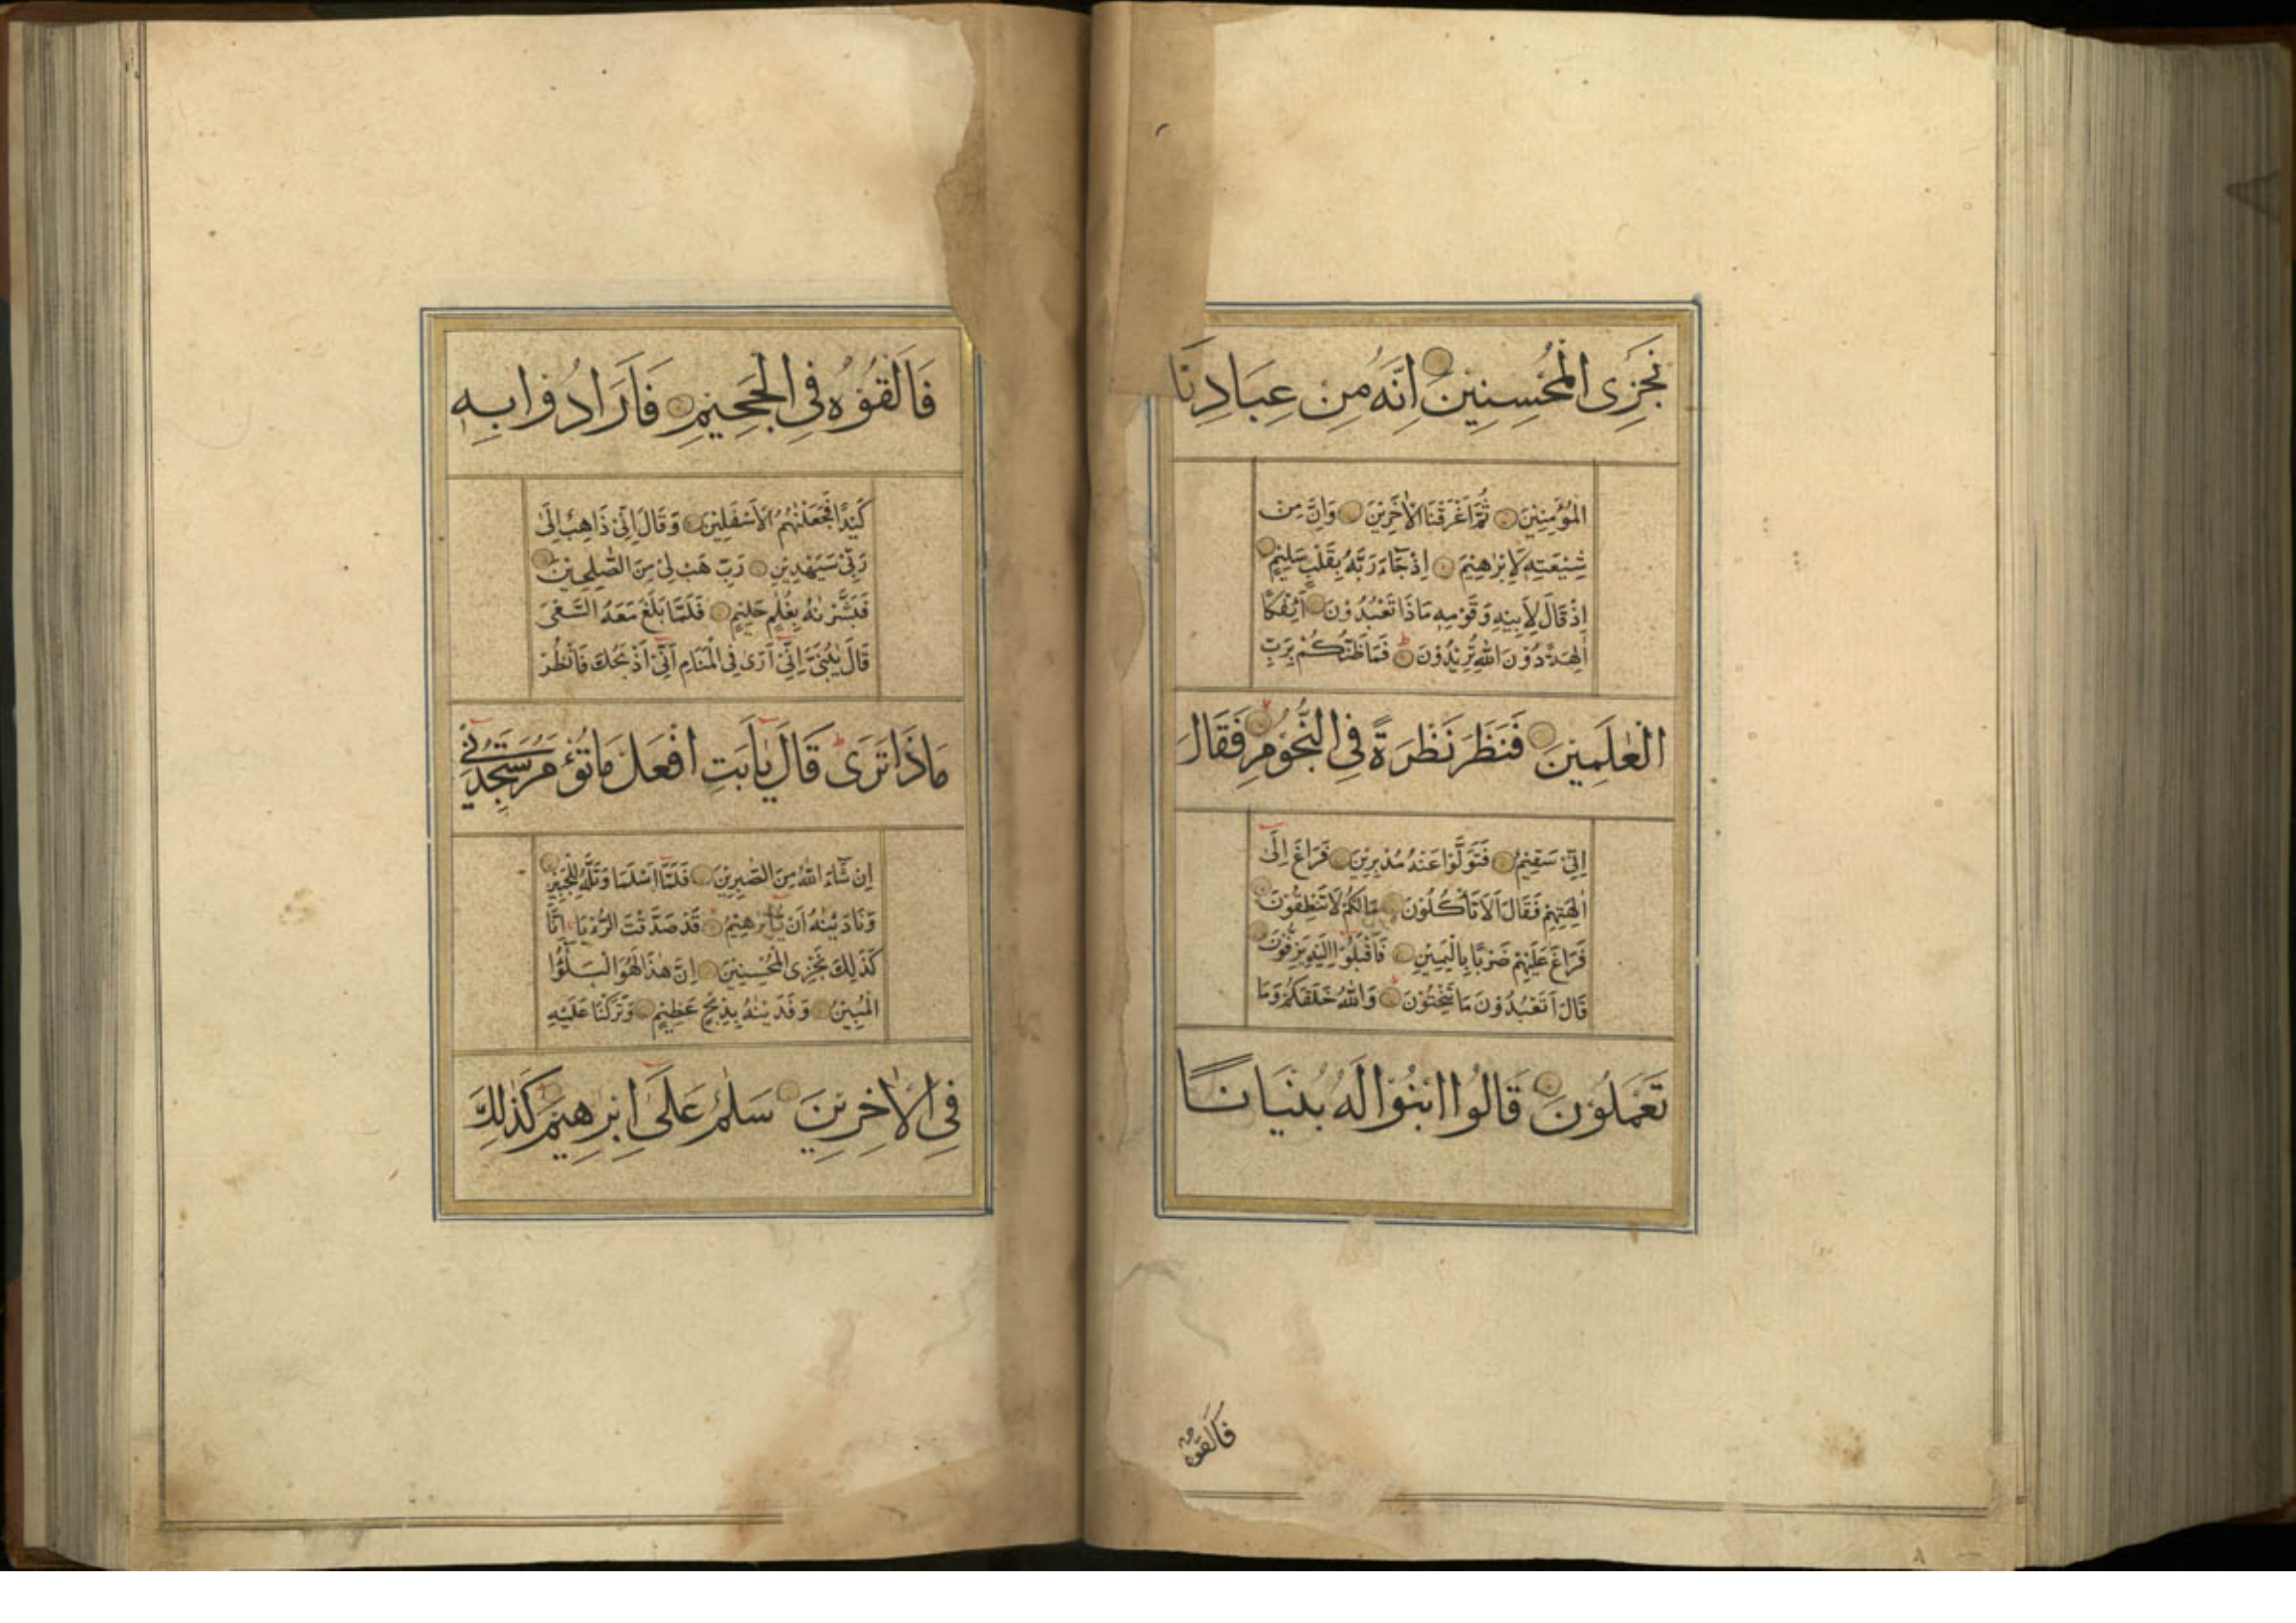 نَجْزِى الْمُحْسِنِينَ اِنَّهُ مِنْ عِبَادِنَا
الْمُؤْمِنِيْنَ ثُمَّ اَغْرَقْنَا الْاٰخَرِيْنَ وَاِنَّ مِنْ
شِيْعَتِهٖ لَاِبْرٰهِيْمَ اِذْ جَآءَ رَبَّهُ بِقَلْبٍ سَلِيْمٍ
اِذْ قَالَ لِاَبِيْهِ وَقَوْمِهٖ مَاذَا تَعْبُدُوْنَ اَئِفْكًا
اٰلِهَةً دُوْنَ اللّٰهِ تُرِيْدُوْنَ فَمَا ظَنُّكُمْ بِرَبِّ
الْعٰلَمِيْنَ فَنَظَرَ نَظْرَةً فِى النُّجُوْمِ فَقَالَ
اِنِّىْ سَقِيْمٌ فَتَوَلَّوْا عَنْهُ مُدْبِرِيْنَ فَرَاغَ اِلٰٓى
اٰلِهَتِهِمْ فَقَالَ اَلَا تَأْكُلُوْنَ مَالَكُمْ لَا تَنْطِقُوْنَ
فَرَاغَ عَلَيْهِمْ ضَرْبًا بِالْيَمِيْنِ فَاَقْبَلُوْٓا اِلَيْهِ يَزِفُّوْنَ
قَالَ اَتَعْبُدُوْنَ مَا تَنْحِتُوْنَ وَاللّٰهُ خَلَقَكُمْ وَمَا
تَعْمَلُوْنَ قَالُوا ابْنُوْا لَهُ بُنْيَانًا
فَاَلْقُوْهُ
فَاَلْقُوْهُ فِى الْجَحِيْمِ فَاَرَادُوْا بِهٖ
كَيْدًا فَجَعَلْنٰهُمُ الْاَسْفَلِيْنَ وَقَالَ اِنِّىْ ذَاهِبٌ اِلٰى
رَبِّىْ سَيَهْدِيْنِ رَبِّ هَبْ لِىْ مِنَ الصّٰلِحِيْنَ
فَبَشَّرْنٰهُ بِغُلٰمٍ حَلِيْمٍ فَلَمَّا بَلَغَ مَعَهُ السَّعْىَ
قَالَ يٰبُنَىَّ اِنِّىْٓ اَرٰى فِى الْمَنَامِ اَنِّىْٓ اَذْبَحُكَ فَانْظُرْ
مَاذَا تَرٰى قَالَ يٰٓاَبَتِ افْعَلْ مَا تُؤْمَرُ سَتَجِدُنِىْٓ
اِنْ شَآءَ اللّٰهُ مِنَ الصّٰبِرِيْنَ فَلَمَّآ اَسْلَمَا وَتَلَّهُ لِلْجَبِيْنِ
وَنَادَيْنٰهُ اَنْ يّٰٓاِبْرٰهِيْمُ قَدْ صَدَّقْتَ الرُّءْيَا اِنَّا
كَذٰلِكَ نَجْزِى الْمُحْسِنِيْنَ اِنَّ هٰذَا لَهُوَ الْبَلٰٓؤُا
الْمُبِيْنُ وَفَدَيْنٰهُ بِذِبْحٍ عَظِيْمٍ وَتَرَكْنَا عَلَيْهِ
فِى الْاٰخِرِيْنَ سَلٰمٌ عَلٰٓى اِبْرٰهِيْمَ كَذٰلِكَ